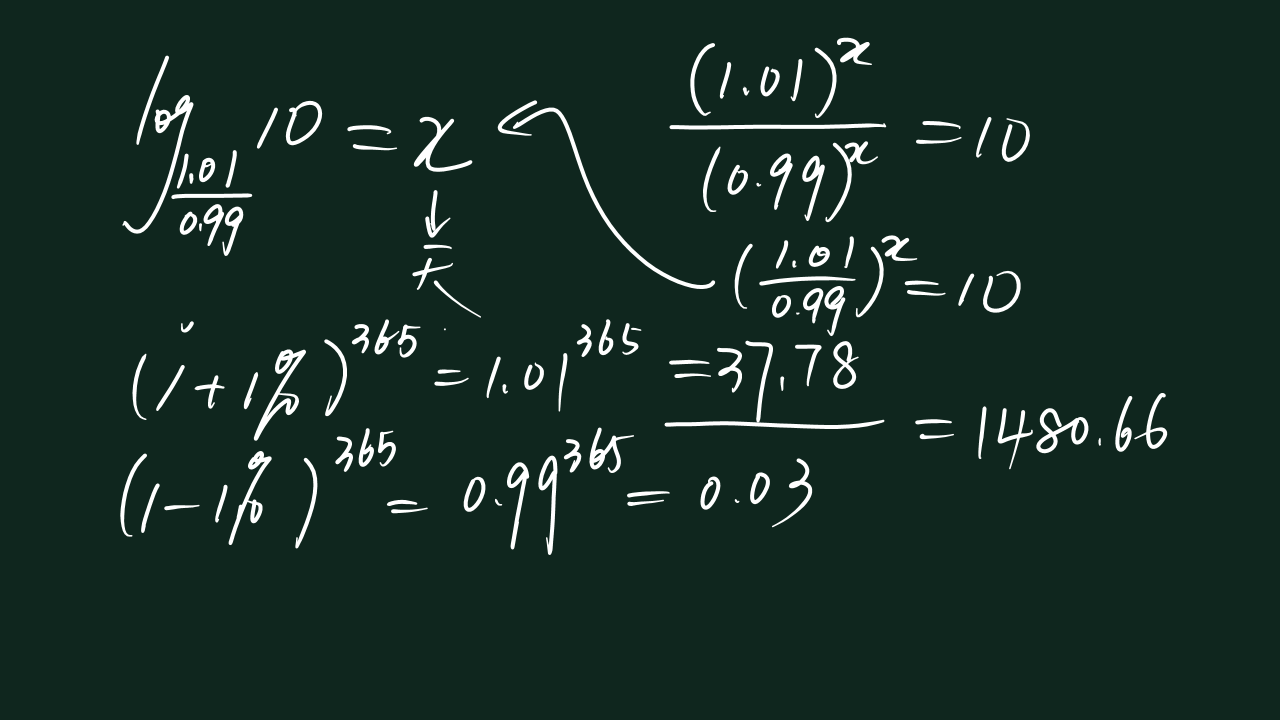 log_{1.01/0.99} 10 = x
天
(1.01)^x / (0.99)^x = 10
(1.01/0.99)^x = 10
(1+1%)^365 = 1.01^365 = 37.78
(1-1%)^365 = 0.99^365 = 0.03
= 1480.66